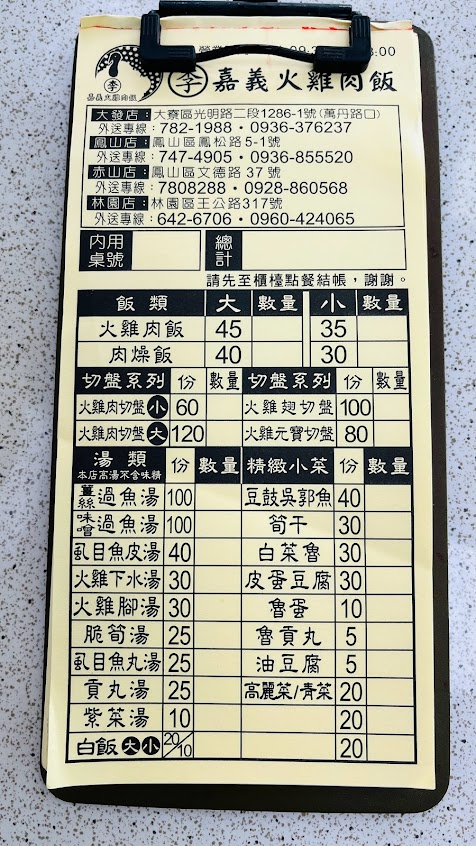 營業
李
嘉義火雞肉飯
李 嘉義火雞肉飯
大發店：大寮區光明路二段1286-1號(萬丹路口)
外送專線：782-1988・0936-376237
鳳山店：鳳山區鳳松路5-1號
外送專線：747-4905・0936-855520
赤山店：鳳山區文德路37號
外送專線：7808288・0928-860568
林園店：林園區王公路317號
外送專線：642-6706・0960-424065
內用桌號 總計
請先至櫃檯點餐結帳，謝謝。
飯類 大 數量 小 數量
火雞肉飯 45 35
肉燥飯 40 30
切盤系列 份 數量 切盤系列 份 數量
火雞肉切盤小 60 火雞翅切盤 100
火雞肉切盤大 120 火雞元寶切盤 80
湯類 份 數量 精緻小菜 份 數量
本店高湯不含味精
薑絲過魚湯 100 豆鼓吳郭魚 40
味噌過魚湯 100 筍干 30
虱目魚皮湯 40 白菜魯 30
火雞下水湯 30 皮蛋豆腐 30
火雞腳湯 30 魯蛋 10
脆筍湯 25 魯貢丸 5
虱目魚丸湯 25 油豆腐 5
貢丸湯 25 高麗菜/青菜 20
紫菜湯 10 20
白飯大小 20/10 20